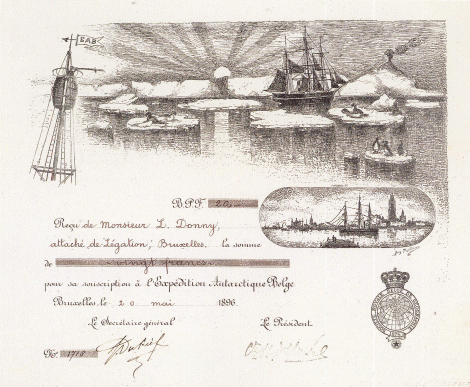 EAB
B.P.F. 20,—
Reçu de Monsieur L. Donny,
attaché de Légation, Bruxelles. la somme
de vingt francs
pour sa souscription à l'Expédition Antarctique Belge
Bruxelles, le 20 mai 1896.
Le Secrétaire général Le Président
No. 1718